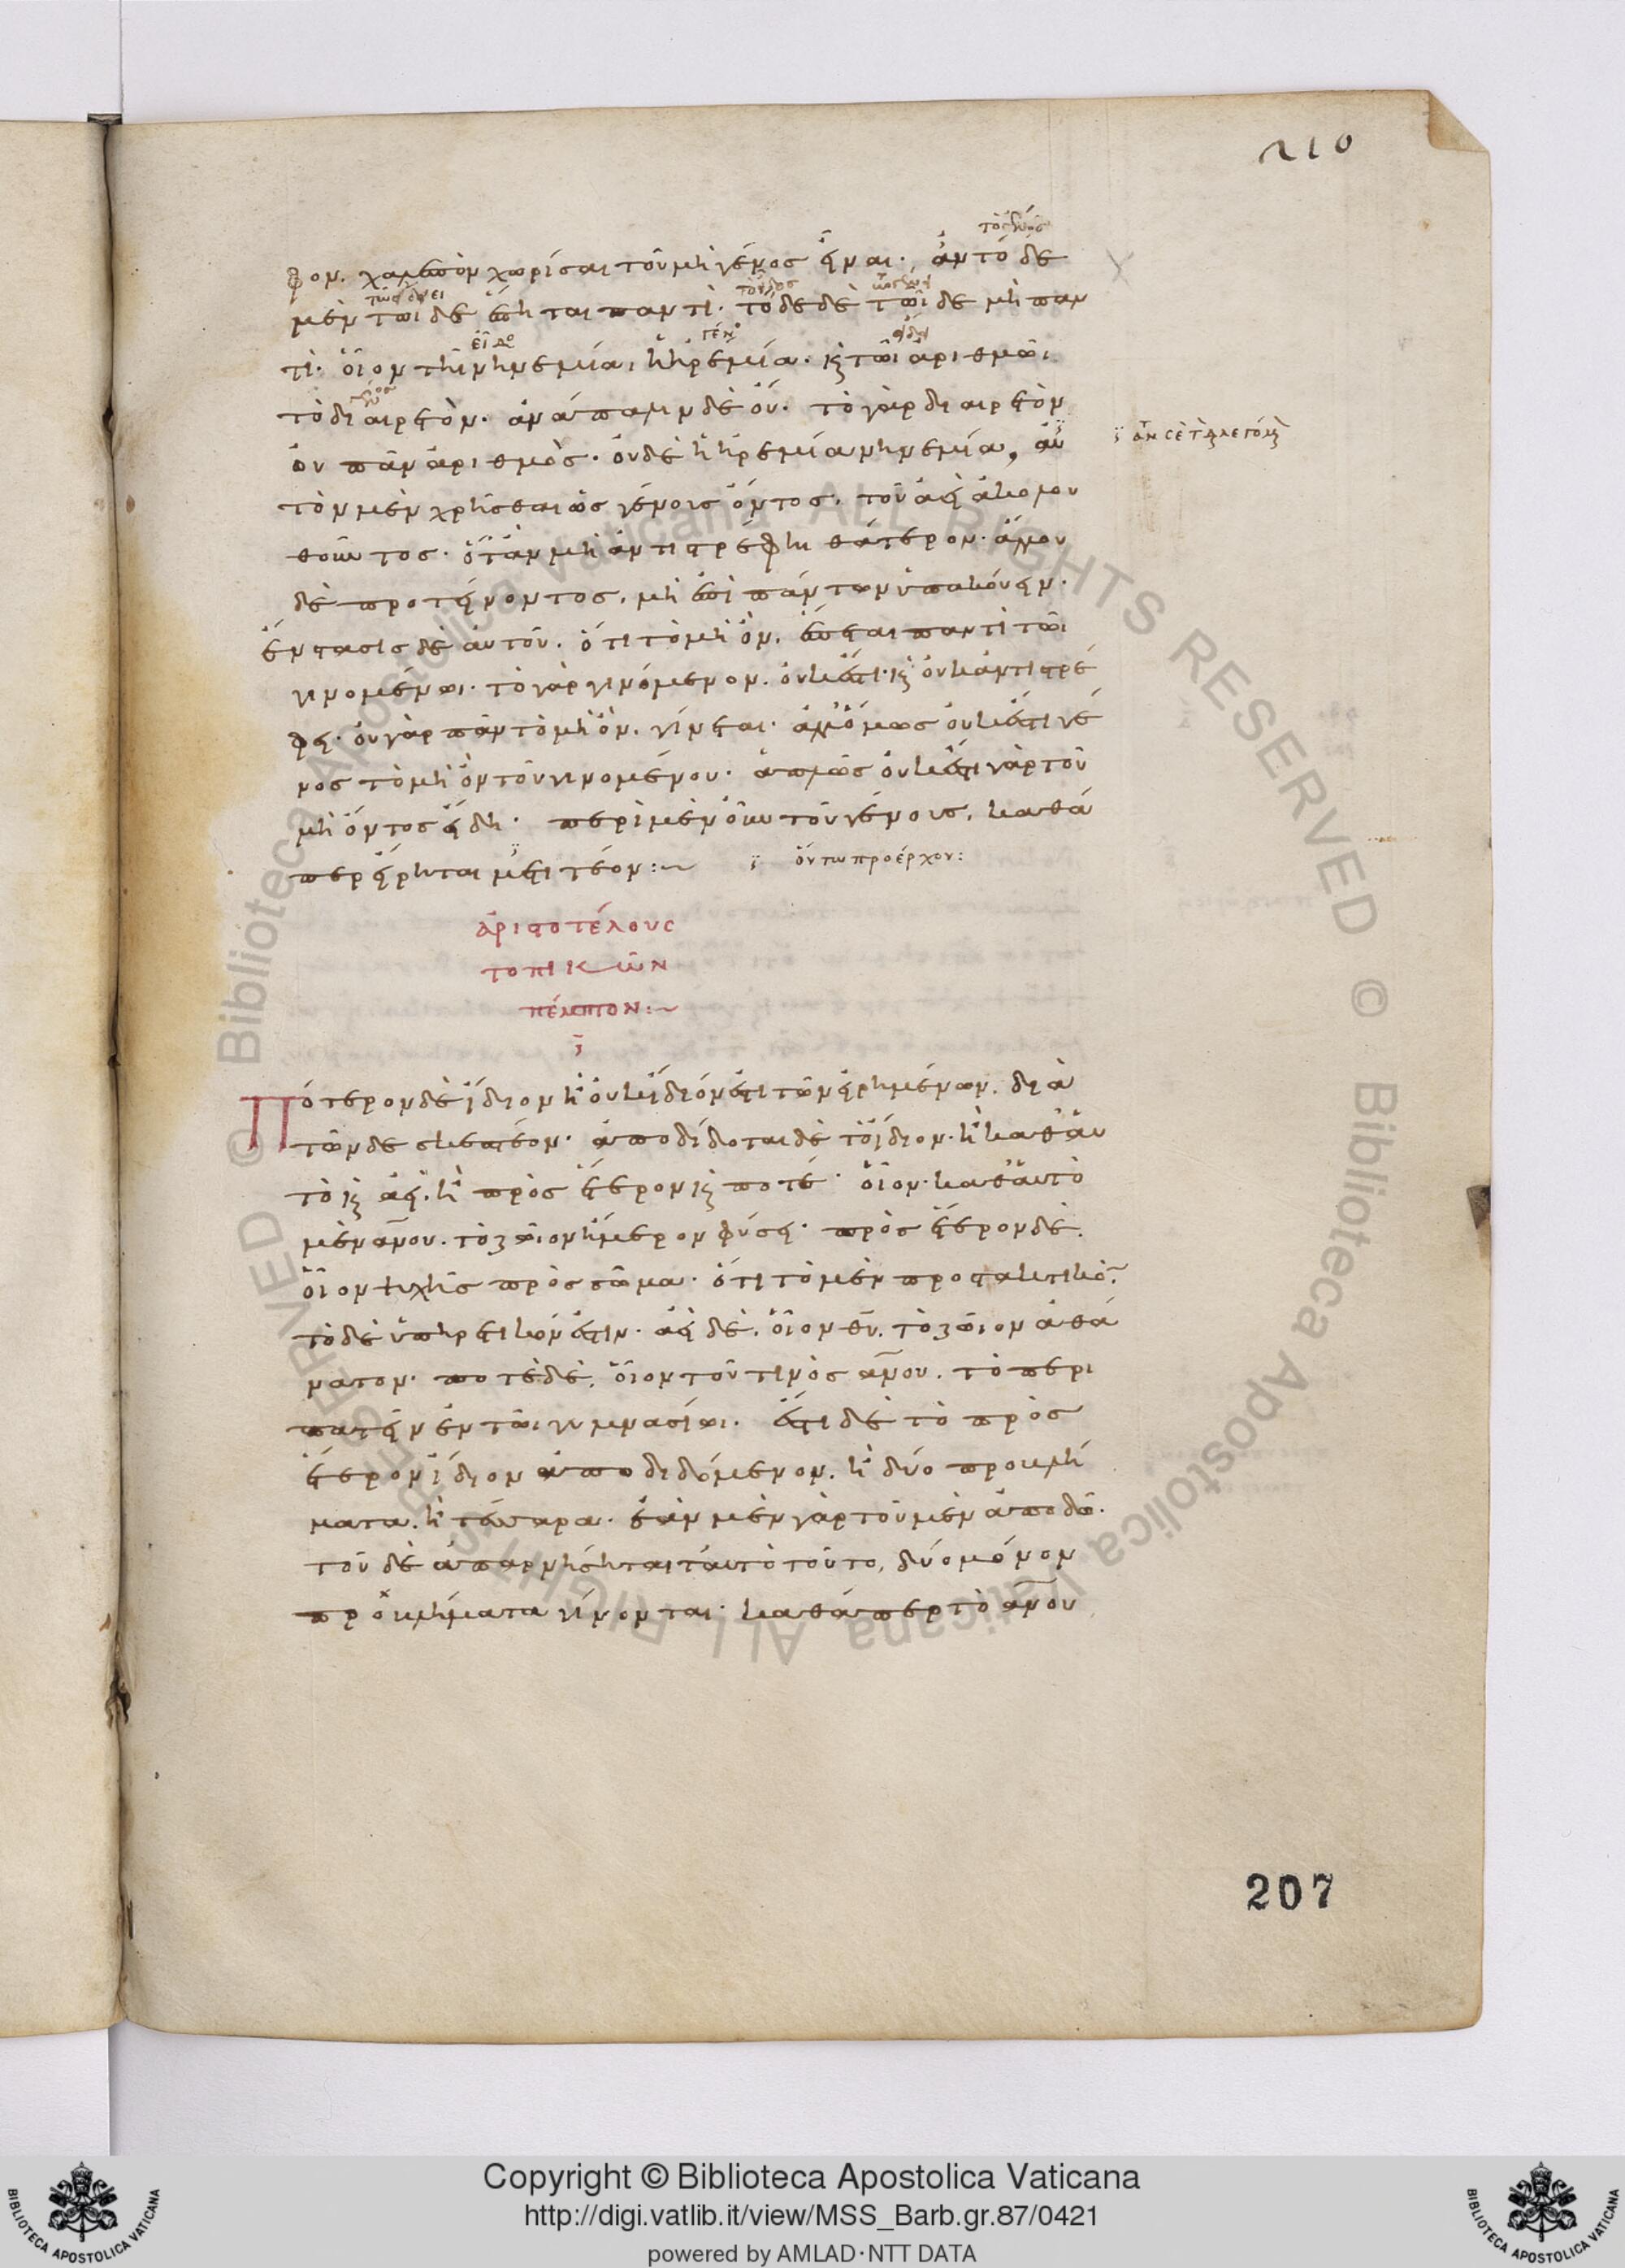 210
τὸ εἶδος
φον. χαλεπὸν χωρίσαι τοῦ μὴ γένος εἶναι· ἂν τόδε
μὲν τῶι δε ἕπηται παντί· τόδε δὲ τῶι δε μὴ παν
εἶδο γέν
τί· οἷον τῆι νηνεμίαι ἡ ἠρεμία· κ(αὶ) τῶι ἀριθμῶι
τὸ διαιρετόν· ἀνάπαλιν δὲ οὔ· τὸ γὰρ διαιρετὸν
οὐ πᾶν ἀριθμός· οὐδὲ ἡ ἠρεμία νηνεμία, αὐ
τὸν μὲν χρῆσθαι ὡς γένους ὄντος. τοῦ ἀεὶ ἀκολου
θοῦντος. ὅταν μὴ ἀντιστρέφηι θάτερον· ἄλλου
δὲ προτείνοντος. μὴ ἐπὶ πάντων ὑπακούειν·
ἔνστασις δὲ αὐτοῦ. ὅτι τὸ μὴ ὄν. ἕπεται παντὶ τῶι
γινομένωι· τὸ γὰρ γινόμενον. οὐκ ἔστι· κ(αὶ) οὐκ ἀντιστρέ
φει· οὐ γὰρ πᾶν τὸ μὴ ὄν. γίνεται· ἀλλ' ὅμως οὐκ ἔστι γέ
νος τὸ μὴ ὂν τοῦ γινομένου· ἁπλῶς οὐκ ἔστι γὰρ τοῦ
μὴ ὄντος εἴδη· περὶ μὲν οὖν τοῦ γένους, καθά
περ εἴρηται μετιτέον:~ οὕτω προέρχον:
ἀριστοτέλους
τοπικῶν
πέμπτον:~
Πότερον δὲ ἴδιον ἢ οὐκ ἴδιόν ἐστι τῶν εἰρημένων. διὰ
τῶνδε σκεπτέον· ἀποδίδοται δὲ τὸ ἴδιον· ἢ καθ' αὑ
τὸ κ(αὶ) ἀεί. ἢ πρὸς ἕτερον κ(αὶ) ποτέ· οἷον· καθ' αὑτὸ
μὲν ἀν(θρώπ)ου. τὸ ζῶιον ἥμερον φύσει· πρὸς ἕτερον δὲ.
οἷον ψυχῆς πρὸς σῶμα· ὅτι τὸ μὲν προστακτικόν.
τὸ δὲ ὑπηρετικόν ἐστιν· ἀεὶ δὲ. οἷον θ(εο)ῦ. τὸ ζῶιον ἀθά
νατον· ποτὲ δὲ. οἷον τοῦ τινὸς ἀν(θρώπ)ου. τὸ περι
πατεῖν ἐν τῶι γυμνασίωι· ἔστι δὲ τὸ πρὸς
ἕτερον ἴδιον ἀποδιδόμενον. ἢ δύο προβλή
ματα. ἢ τέτταρα· ἐὰν μὲν γὰρ τοῦ μὲν ἀποδῶ·
τοῦ δὲ ἀπαρνήσηται ταὐτὸ τοῦτο, δύο μόνον
προβλήματα γίνονται· καθάπερ τὸ ἀν(θρώπ)ου
207
Copyright © Biblioteca Apostolica Vaticana
http://digi.vatlib.it/view/MSS_Barb.gr.87/0421
powered by AMLAD·NTT DATA